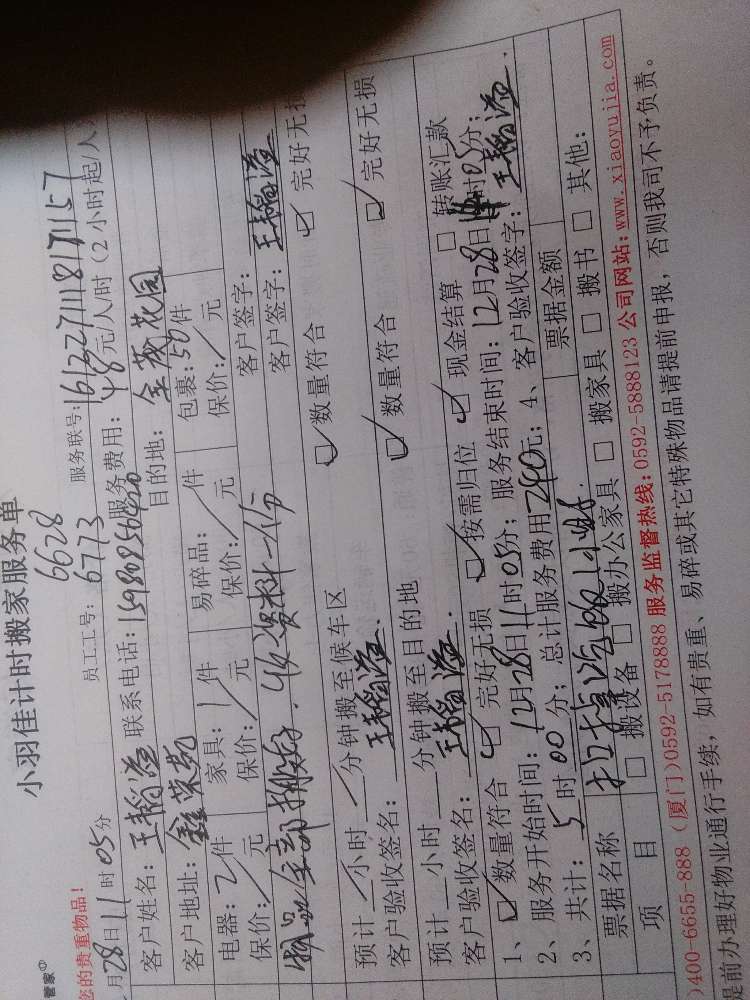 管家
小羽佳计时搬家服务单
您的贵重物品！
员工工号： 6628 6773
服务联号：1612271118171157
月28日11时05分
服务费用：48元/人/时（2小时起/人
客户姓名：王韬滢 联系电话：15980856420
目的地：金茂花园
客户地址：鑫荣苑
电器：2件 家具：1件 易碎品：/件 包裹：50件
保价：/元 保价：/元 保价：/元 保价：/元
客户签字：
物品全部搬好 收资料一份 客户签字：王韬滢
预计 小时 分钟搬至候车区 ☑数量符合 ☑完好无损
客户验收签名：王韬滢
预计 小时 分钟搬至目的地 ☑数量符合 ☑完好无损
客户验收签名：王韬滢
1、☑数量符合 ☑完好无损 ☑按需归位 ☑现金结算 □转账汇款
2、服务开始时间：12月28日11时05分；服务结束时间：12月28日 时05分；
3、共计：5时00分；总计服务费用240元；4、客户验收签字：王韬滢
票据名称 票据金额
项目 □搬设备 □搬办公家具 □搬家具 □搬书 □其他：
)400-6655-888（厦门)0592-5178888 服务监督热线：0592-5888123 公司网站：www.xiaoyujia.com
提前办理好物业通行手续，如有贵重、易碎或其它特殊物品请提前申报，否则我司不予负责。